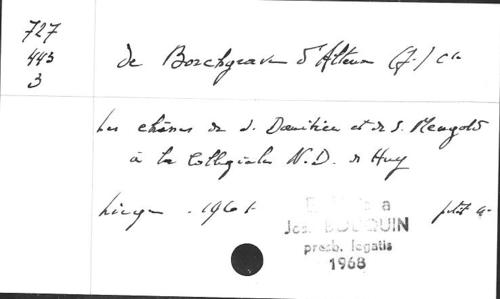 727
443
3
de Borchgrave d'Altena (J.) Cte
Les châsses de S. Domitien et de S. Mengold
à la Collégiale N.D. de Huy
Liège . 1961
petit 4°
a
Jos. BOUQUIN
presb. legatis
1968